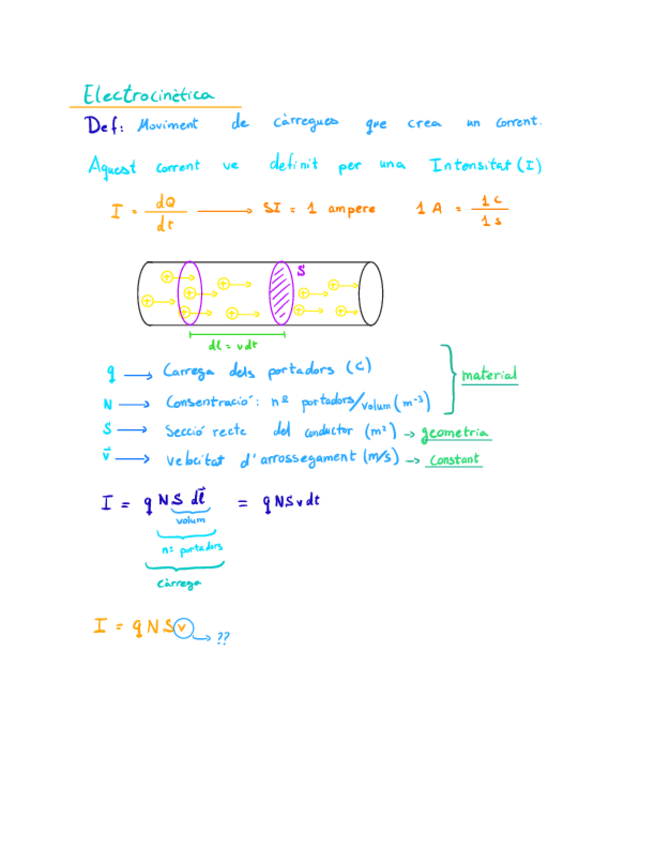 Electrocinètica
Def: Moviment de càrregues que crea un corrent.
Aquest corrent ve definit per una Intensitat (I)
I = dQ/dt → SI = 1 ampere 1 A = 1 C/1 s
S
dl = vdt
q → Carrega dels portadors (C)
N → Consentració: nº portadors/volum (m⁻³)
material
S → Secció recte del conductor (m²) → geometria
v⃗ → velocitat d'arrossegament (m/s) → Constant
I = q N S dl⃗ = q N S v dt
volum
nº portadors
càrrega
I = q N S v → ??